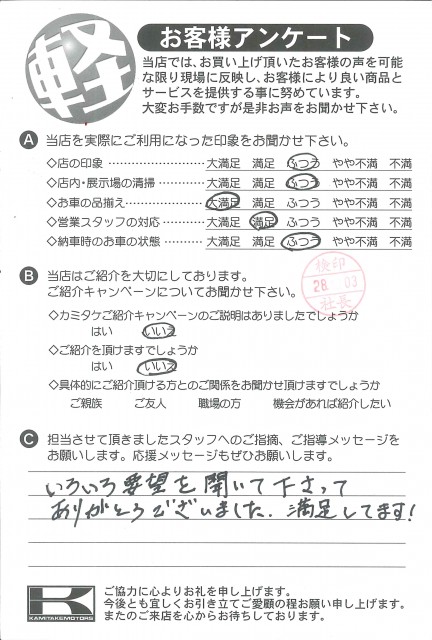 軽
お客様アンケート
当店では、お買い上げ頂いたお客様の声を可能
な限り現場に反映し、お客様により良い商品と
サービスを提供する事に努めています。
大変お手数ですが是非お声をお聞かせ下さい。
A 当店を実際にご利用になった印象をお聞かせ下さい。
◇店の印象 ………………………… 大満足 満足 ふつう やや不満 不満
◇店内・展示場の清掃 ………… 大満足 満足 ふつう やや不満 不満
◇お車の品揃え ………………… 大満足 満足 ふつう やや不満 不満
◇営業スタッフの対応 ………… 大満足 満足 ふつう やや不満 不満
◇納車時のお車の状態 ………… 大満足 満足 ふつう やや不満 不満
B 当店はご紹介を大切にしております。
ご紹介キャンペーンについてお聞かせ下さい。
検印
28. 03
社長
◇カミタケご紹介キャンペーンのご説明はありましたでしょうか
はい いいえ
◇ご紹介を頂けますでしょうか
はい いいえ
◇具体的にご紹介頂ける方とのご関係をお聞かせ頂けますでしょうか
ご親族 ご友人 職場の方 機会があれば紹介したい
C 担当させて頂きましたスタッフへのご指摘、ご指導メッセージを
お願いします。応援メッセージもぜひお願いします。
いろいろ要望を聞いて下さって
ありがとうございました. 満足してます!
K
KAMITAKEMOTORS
ご協力に心よりお礼を申し上げます。
今後とも宜しくお引き立てご愛顧の程お願い申し上げます。
またのご来店を心からお待ちしております。